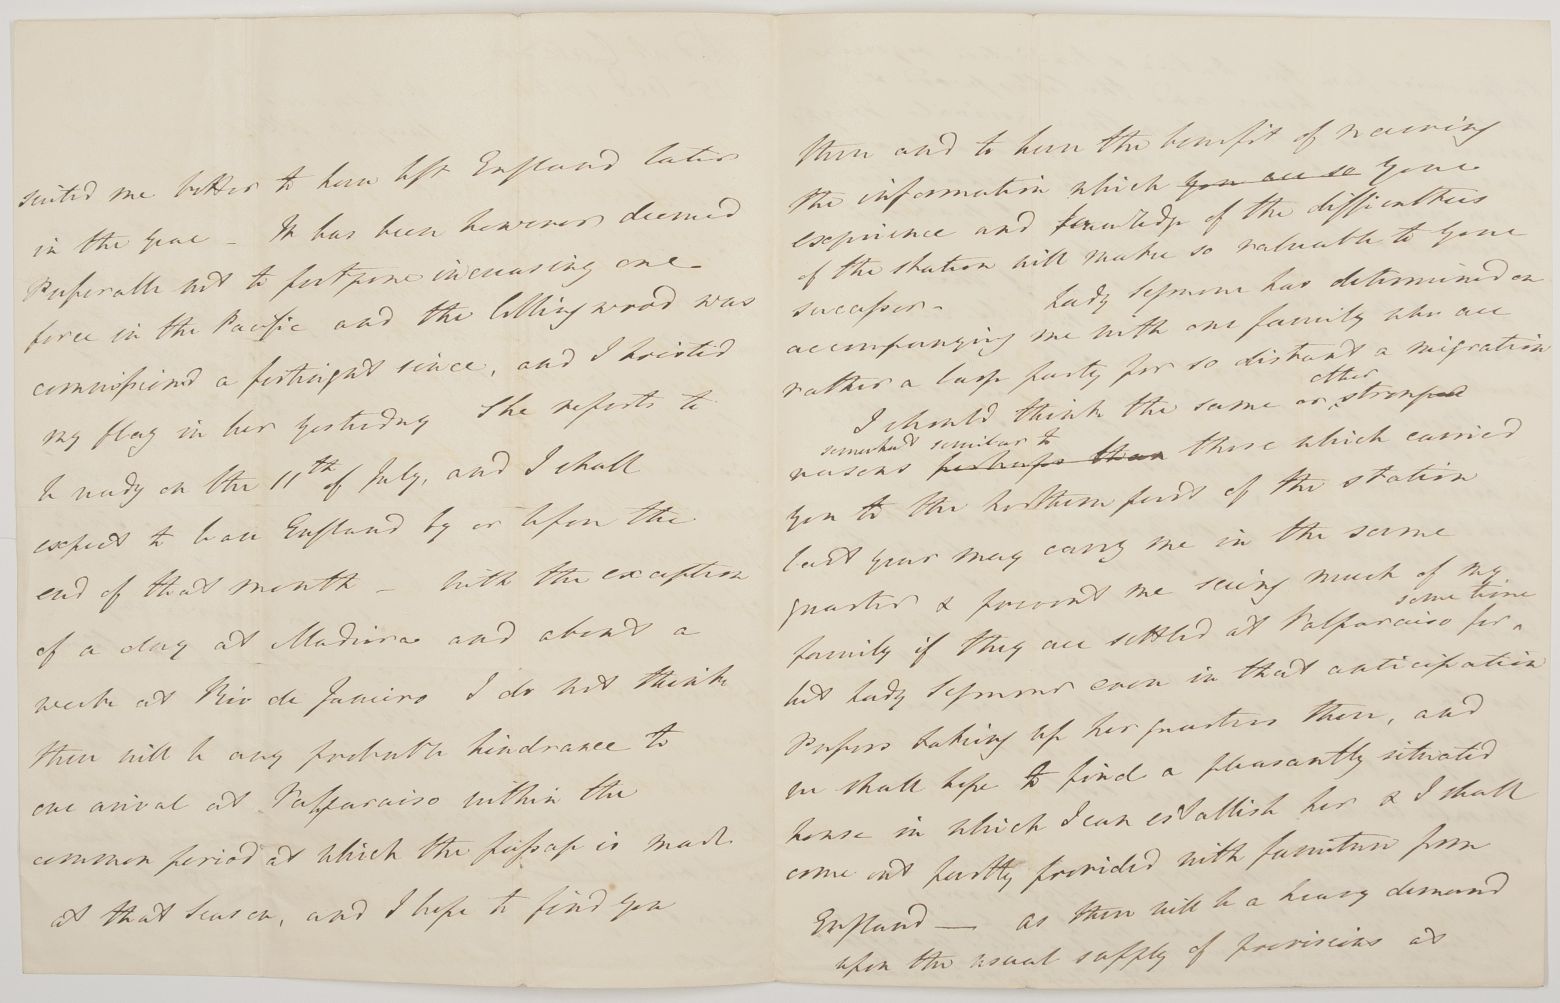 suited me better to have left England later
in the year - It has been however deemed
Preferable not to postpone increasing our
force in the Pacific and the Collingwood was
commissioned a fortnight since, and I hoisted
my flag in her yesterday She reports to
be ready on the 11th of July, and I shall
expect to leave England by or before the
end of that month - With the exception
of a day at Madeira and about a
week at Rio de Janeiro I do not think
there will be any probable hindrance to
our arrival at Valparaiso within the
common period at which the passage is made
at that season, and I hope to find you
there and to have the benefit of receiving
the information which you are so your
experience and knowledge of the difficulties
of the station will make so valuable to your
successor - Lady Seymour has determined on
accompanying me with our family who are
rather a large party for so distant a migration
other
I should think the same or stronger
somewhat similar to
reasons perhaps than those which carried
you to the northern part of the station
last year may carry me in the same
quarter & prevent me seeing much of my
some time
family if they are settled at Valparaiso for a
but Lady Seymour even in that anticipation
Prefers taking up her quarters there, and
we shall hope to find a pleasantly situated
house in which I can establish her & I shall
come out partly provided with furniture from
England — As there will be a heavy demand
upon the usual supply of provisions at